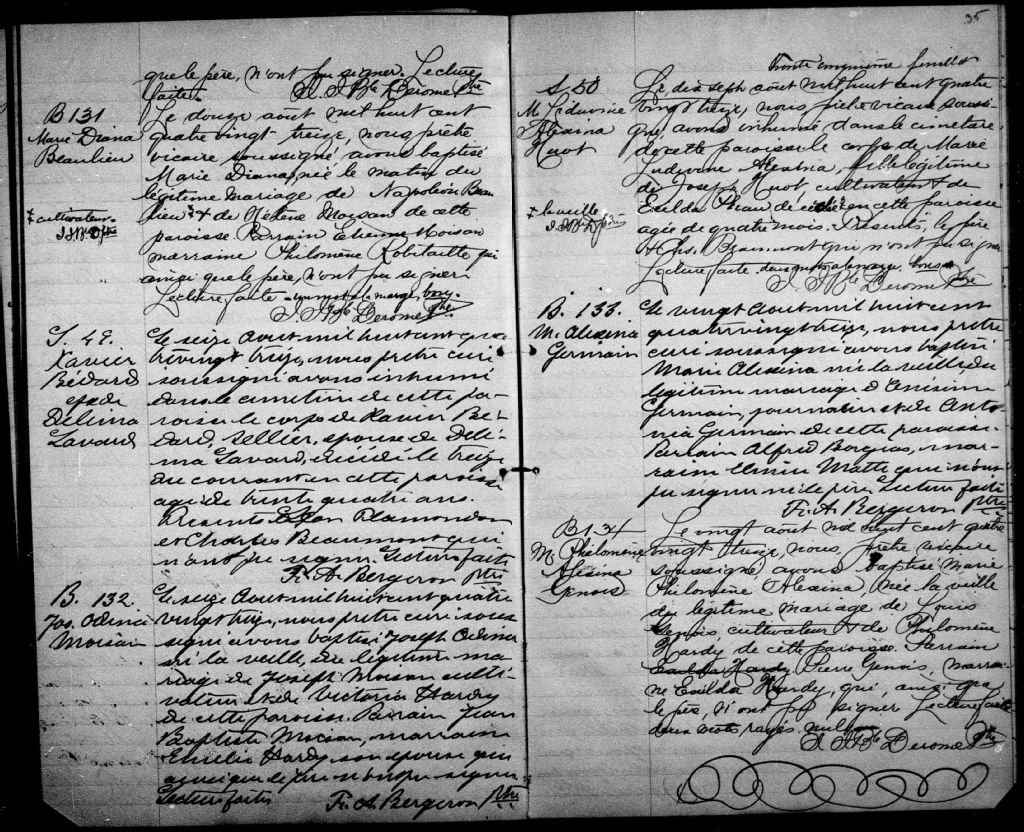 que le père, n'ont pu signer. Lecture
faite.
J. J. Bte Derome Ptre
B 131
Marie Diana
Beaulieu
+ cultivateur.
J. J. B. D ptre
Le douze août mil huit cent
quatre vingt treize, nous prêtre
vicaire soussigné, avons baptisé
Marie Diana, née le matin du
légitime mariage de Napoléon Beau
lieu + & de Hélène Moisan de cette
paroisse. Parrain Etienne Moisan
marraine Philomène Robitaille qui
ainsi que le père, n'ont pu signer.
Lecture faite. un mot à la marge bon.
J. J. Bte Derome Ptre
S. 49.
Xavier
Bédard
épx de
Delima
Savard
Le seize Aout mil huit cent qua
trevingt treize, nous pretre curé
soussigné avons inhumé
dans le cimetière de cette pa-
roisse le corps de Xavier Bé-
dard, sellier, epoux de Déli-
ma Savard, décédé le treize
du courant en cette paroisse
agé de trente quatre ans.
Présents Plamondon
et Charles Beaumont qui
n'ont pu signer. Lecture faite
Fr. A. Bergeron Ptre
B. 132.
Jos. Odina
Moisan
Le seize Aout mil huit cent quatre
vingt treize, nous pretre curé sous
signé avons baptisé Joseph Odina
né la veille, du légitime ma
riage de Joseph Moisan culti-
vateur et de Victoria Hardy
de cette paroisse. Parrain Jean
Baptiste Moisan, marraine
Emélie Hardy son épouse qui
ainsi que le père n'ont pu signer
Lecture faite
Fr. A. Bergeron Ptre
35
Trente cinquième feuillet
S 50
M. Ledivine
Alexina
Huot
+ la veille
J. J. B. D ptre
Le dix sept août mil huit cent quatre
vingt treize, nous prêtre vicaire soussi-
gné, avons inhumé dans le cimetière
de cette paroisse le corps de Marie
Ludivine Alexina, fille légitime
de Joseph Huot, cultivateur & de
Exilda décédée + en cette paroisse
agée de quatre mois. Présents, le père
& Chs. Beaumont qui n'ont pu signer
Lecture faite. deux mots à la marge bons
J. J. Bte Derome Ptre
B. 133.
M. Alexina
Germain
Le vingt Aout mil huit cent
quatrevingt treize, nous pretre
curé soussigné avons baptisé
Marie Alexina née la veille du
légitime mariage d'Onésime
Germain, journalier et de Anto
nia Germain de cette paroisse.
Parrain Alfred Borgias, mar-
raine Elmire Matte qui n'ont
pu signer ni le père. Lecture faite
Fr. A. Bergeron Ptre
B 134
M. Philomène
Alexina
Genois
Le vingt août mil huit cent quatre
vingt treize, nous, prêtre vicaire
soussigné, avons baptisé Marie
Philomène Alexina, née la veille
du légitime mariage de Louis
Genois, cultivateur & de Philomène
Hardy de cette paroisse. Parrain
Exilda Hardy Pierre Genois, marrai-
ne Exilda Hardy, qui, ainsi que
le père, n'ont pu signer Lecture faite
deux mots rayés nuls
J. J. Bte Derome Ptre